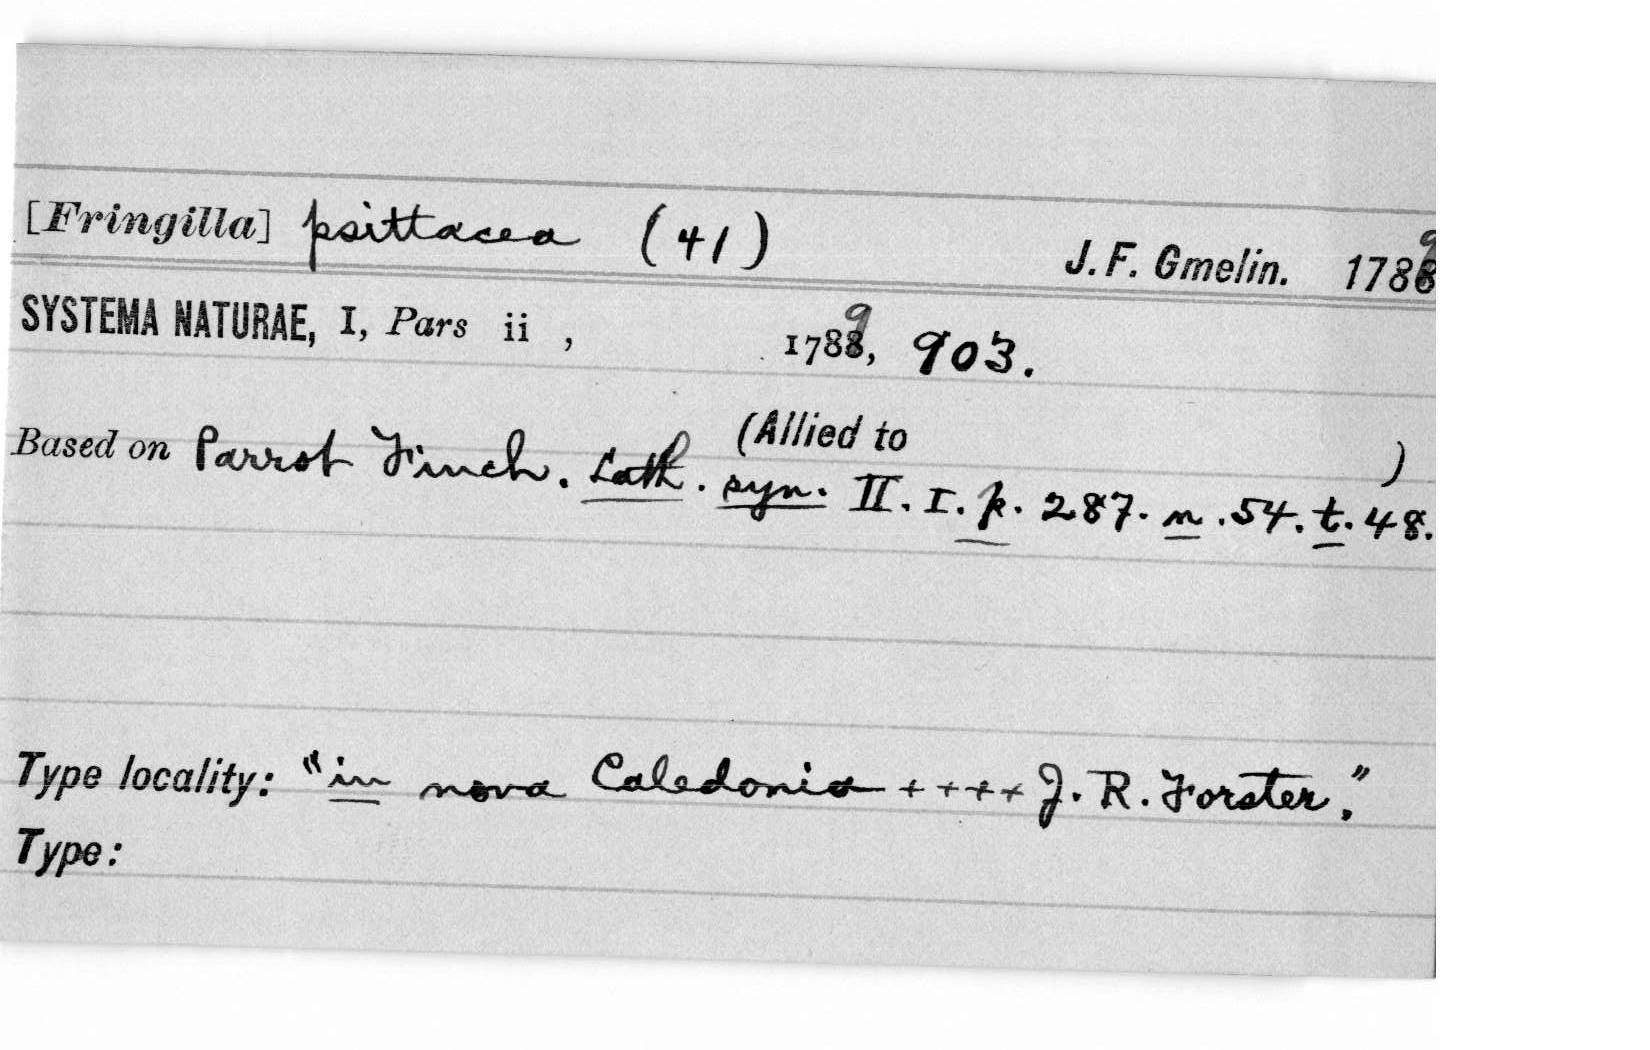 [Fringilla] psittacea (41) J. F. Gmelin. 1789
SYSTEMA NATURAE, I, Pars ii , 1789, 903.
(Allied to )
Based on Parrot Finch. Lath. syn. II. I. p. 287. n. 54. t. 48.
Type locality: "in nova Caledonia ++++ J. R. Forster."
Type: